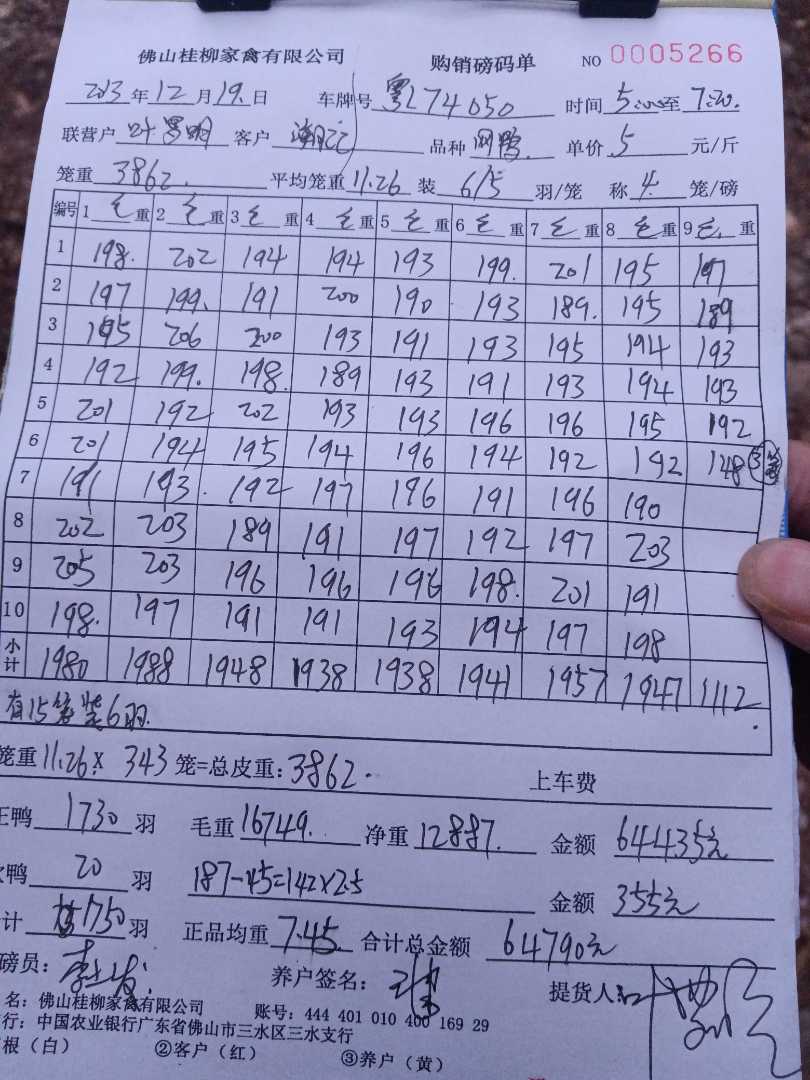 佛山桂柳家禽有限公司 购销磅码单 NO 0005266
2013年12月19日 车牌号 粤L74050 时间 5:00至7:20.
联营户 叶 明 客户 品种 鸭 单价 5 元/斤
笼重 3862. 平均笼重 11.26 装 6/5 羽/笼 称 4 笼/磅
编号 1 毛重 2 毛重 3 毛重 4 毛重 5 毛重 6 毛重 7 毛重 8 毛重 9 毛重
1 198. 202 194 194 193 199. 201 195 197
2 197 199. 191 200 190 193 189. 195 189
3 195 206 200 193 191 193 195 194 193
4 192 199. 198. 189 193 191 193 194 193
5 201 192 202 193 193 196 196 195 192
6 201 194 195 194 196 194 192 192 148 3笼
7 191 193. 192 197 196 191 196 190
8 202 203 189 191 197 192 197 203
9 205 203 196 196 196 198. 201 191
10 198. 197 191 191 193 194 197 198
小计 1980 1988 1948 1938 1938 1941 1957 1947 1112.
有15笼装6羽.
笼重 11.26× 343 笼=总皮重: 3862. 上车费
正鸭 1730 羽 毛重 16749. 净重 12887. 金额 64435元
鸭 20 羽 187-45=142×2.5 金额 355元
计 1750 羽 正品均重 7.45. 合计总金额 64790元
磅员: 李 养户签名: 提货人:
名: 佛山桂柳家禽有限公司 账号: 444 401 010 400 169 29
行: 中国农业银行广东省佛山市三水区三水支行
根(白) ②客户(红) ③养户(黄)